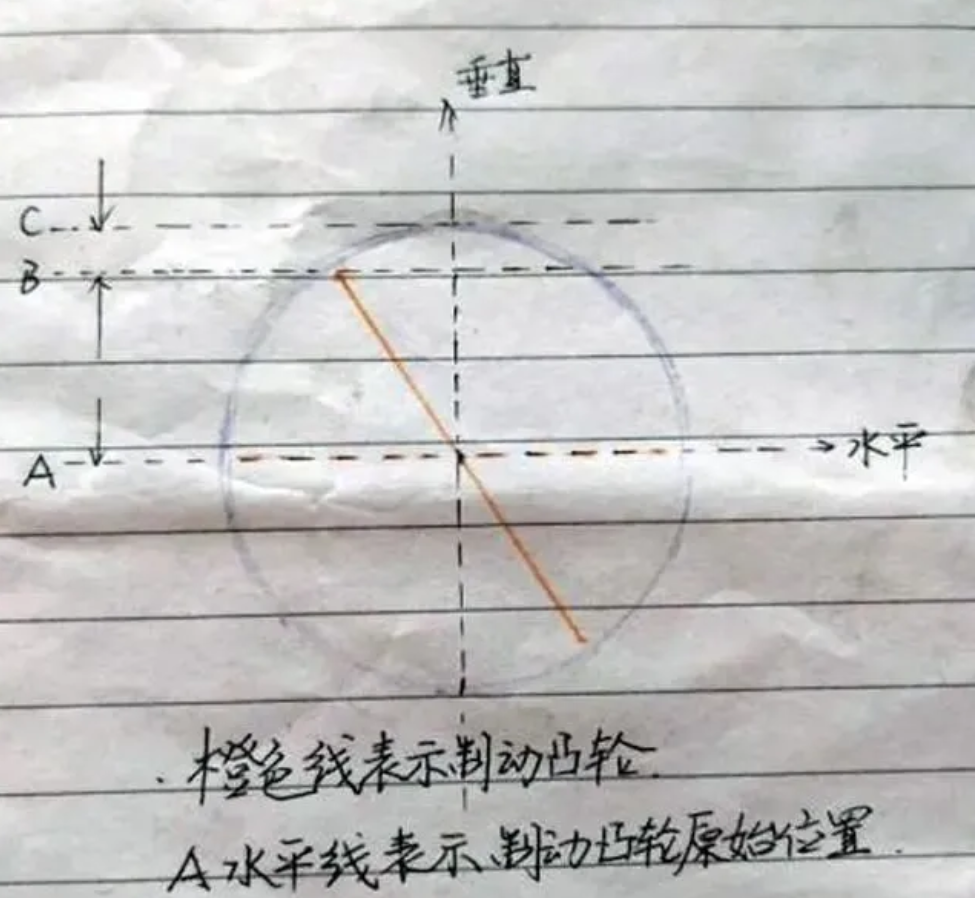 垂直
C
B
A
水平
橙色线表示制动凸轮.
A水平线表示制动凸轮原始位置.